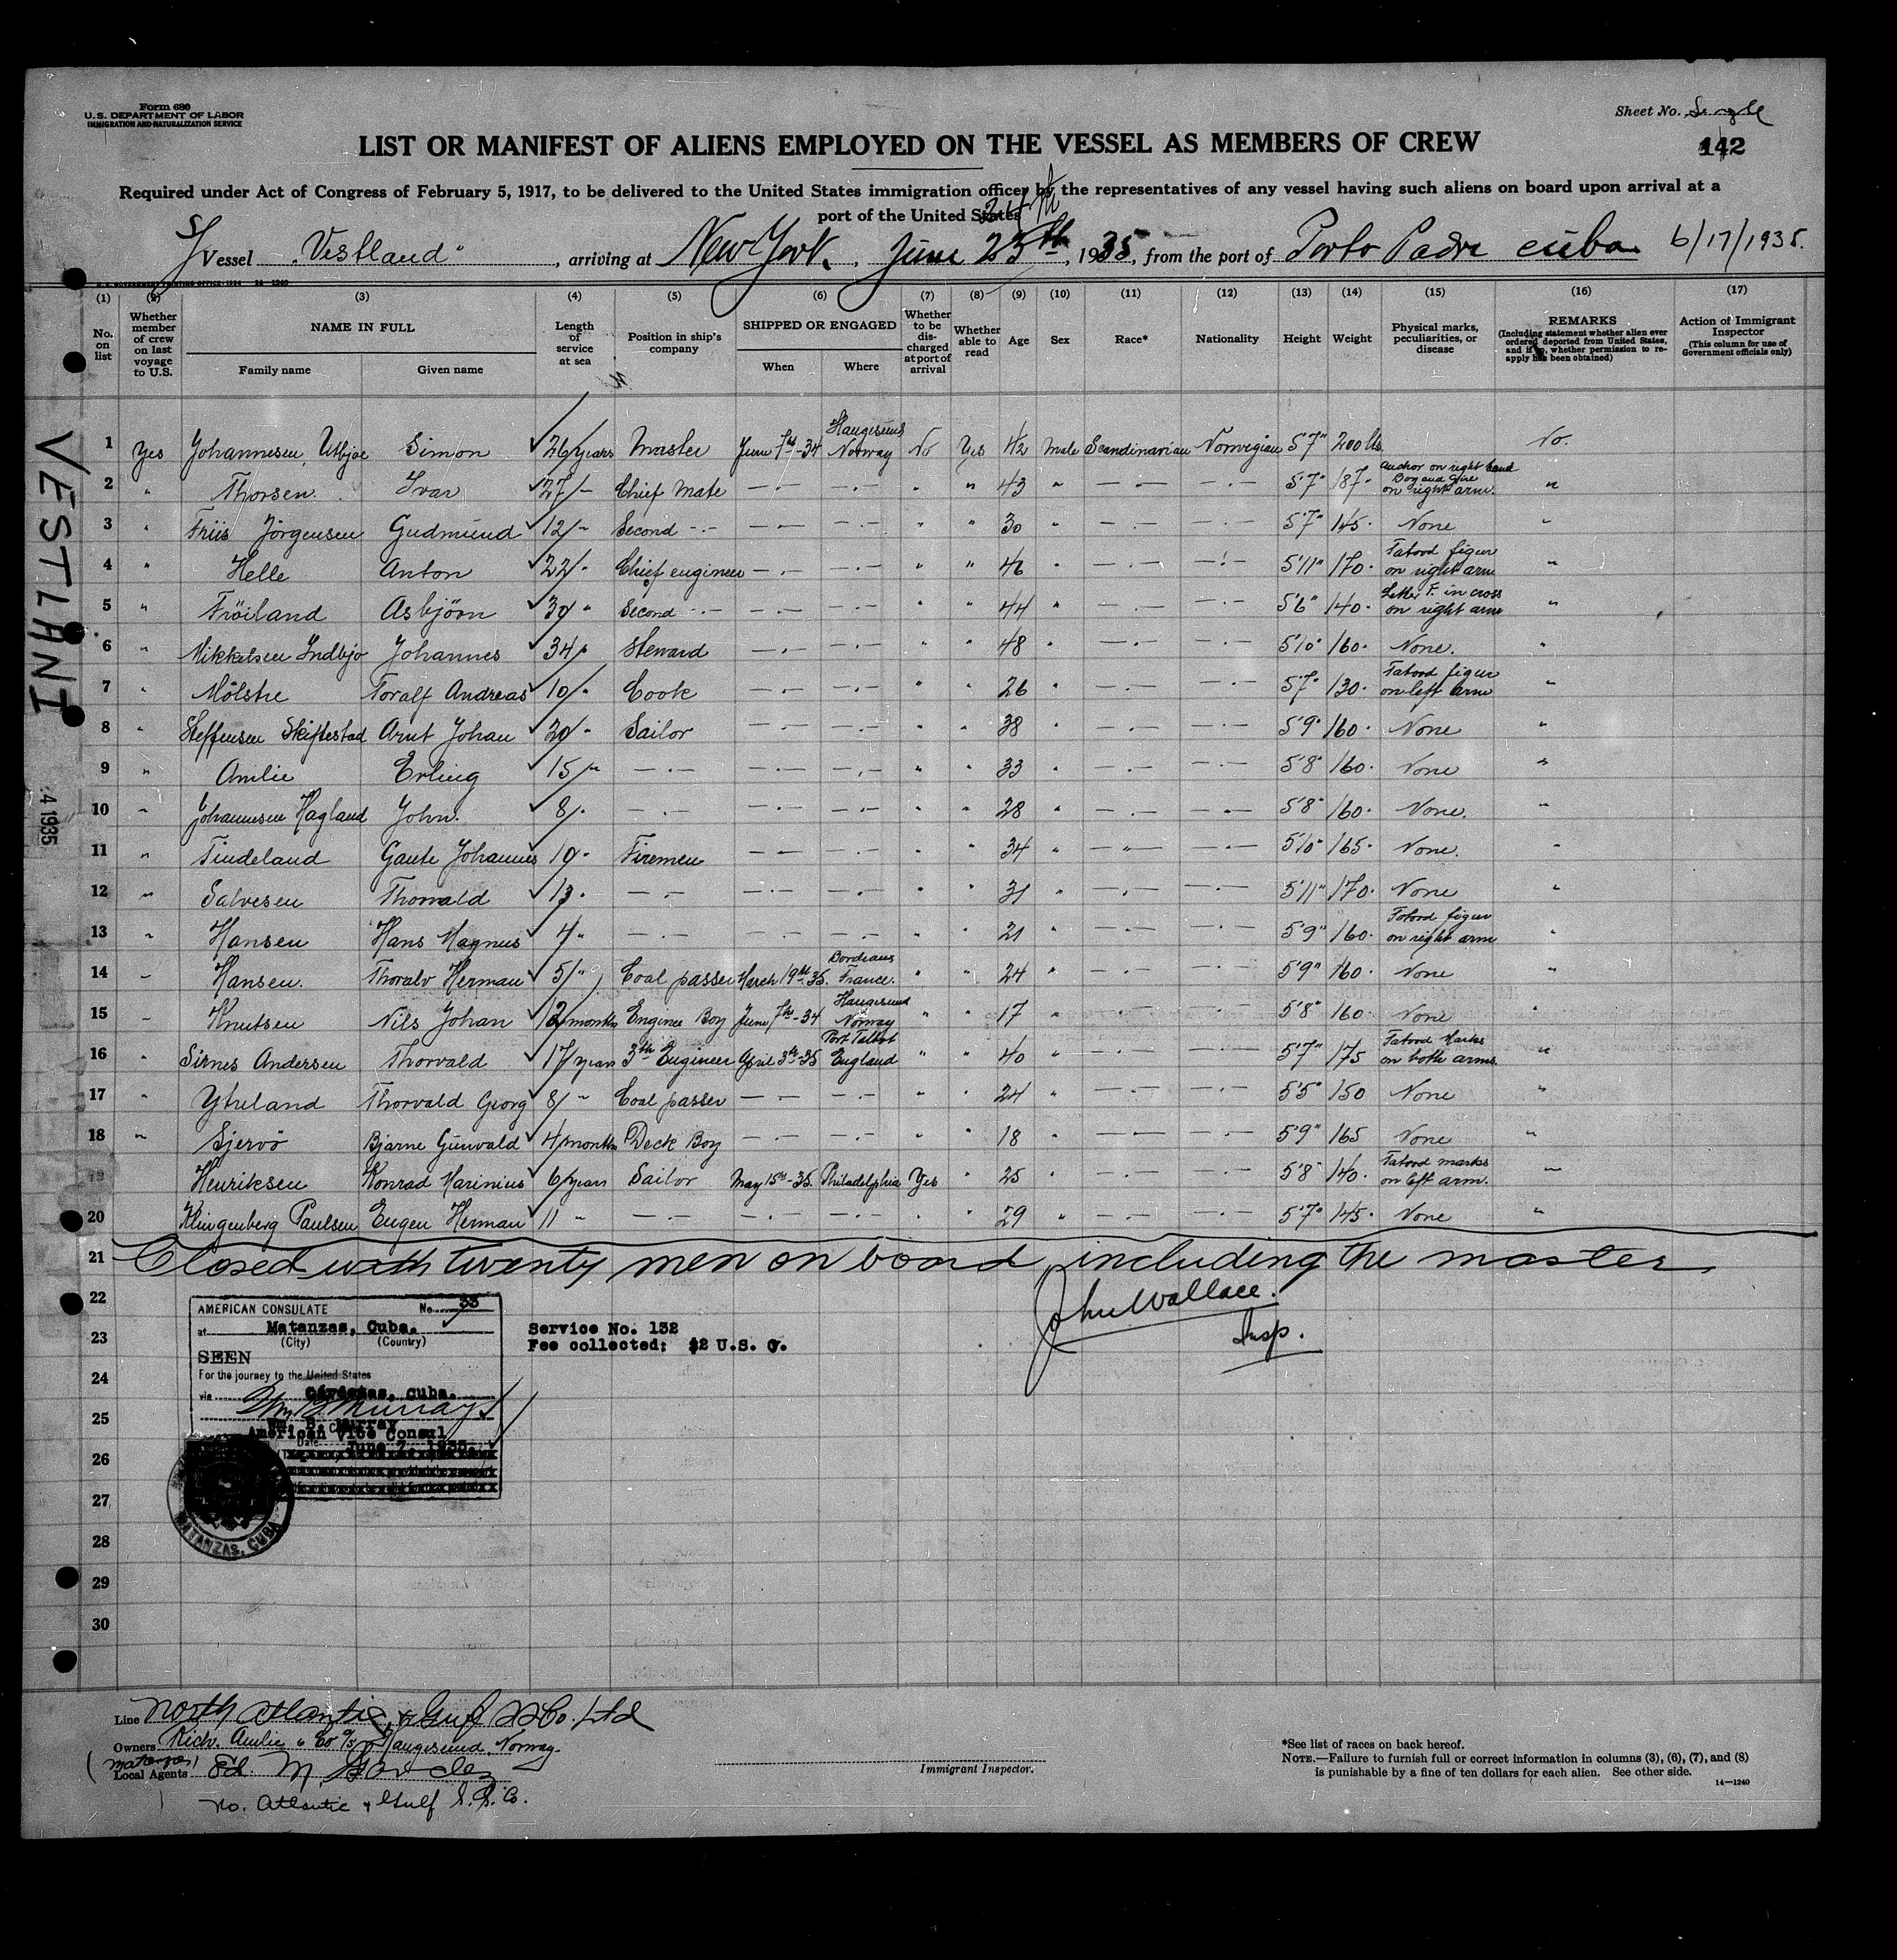 Form 680
U.S. DEPARTMENT OF LABOR
IMMIGRATION AND NATURALIZATION SERVICE
Sheet No. Single
142
LIST OR MANIFEST OF ALIENS EMPLOYED ON THE VESSEL AS MEMBERS OF CREW
Required under Act of Congress of February 5, 1917, to be delivered to the United States immigration officer by the representatives of any vessel having such aliens on board upon arrival at a
port of the United States
S/ Vessel "Vestland", arriving at New York, June 23th, 1935, from the port of Porto Padre cuba 6/17/1935.
(1) (2) (3) (4) (5) (6) (7) (8) (9) (10) (11) (12) (13) (14) (15) (16) (17)
No. on list Whether member of crew on last voyage to U.S. NAME IN FULL Family name Given name Length of service at sea Position in ship's company SHIPPED OR ENGAGED When Where Whether to be discharged at port of arrival Whether able to read Age Sex Race* Nationality Height Weight Physical marks, peculiarities, or disease REMARKS (Including statement whether alien ever ordered deported from United States, and if so, whether permission to reapply has been obtained) Action of Immigrant Inspector (This column for use of Government officials only)
VESTLAND
4 1935
1 Yes Johannesen, Utbjoe Simon 26 years Master June 7th-34 Haugesund Norway No Yes 42 Male Scandinavian Norwegian 5'7" 200 lbs No.
2 " Thorsen Ivar 27 Chief Mate " " 43 " 5'7" 187 Anchor on right hand Boy and Girl on right arm. "
3 " Friis Jörgensen Gudmund 12 Second " " 30 " 5'7" 145 None "
4 " Helle Anton 22 Chief engineer " " 46 " 5'11" 170 Tatood figur on right arm "
5 " Fröiland Asbjörn 30 Second " " 44 " 5'6" 140 Letter F. in cross on right arm "
6 " Mikkelsen Indbjo Johannes 34 Steward " " 48 " 5'10" 160 None. "
7 " Mölstre Toralf Andreas 10 Cook " " 26 " 5'7" 130 Tatood figur on left arm "
8 " Steffensen Skiftestad Arnt Johan 20 Sailor " " 38 " 5'9" 160 None "
9 " Amlie Erling 15 " " 33 " 5'8" 160 None "
10 " Johannesen Hagland John. 8 " " 28 " 5'8" 160 None. "
11 " Tindeland Gaute Johannes 10 Firemen " " 34 " 5'10" 165 None. "
12 " Salvesen Thorvald 13 " " 31 " 5'11" 170 None "
13 " Hansen Hans Magnus 4 " " 21 " 5'9" 160 Tatood figur on right arm "
14 " Hansen. Thoralv Herman 5 Coal passer March 19th-35. Bordeaus France. " " 24 " 5'9" 160 None "
15 " Knutsen Nils Johan 12 months Engine Boy June 7th-34 Haugesund Norway " " 17 " 5'8" 160 None "
16 " Sirnes Andersen Thorvald 17 years 3th Engineer April 3th-35 Port Talbot England " " 40 " 5'7" 175 Tatood Marks on both arms "
17 " Ytreland Thorvald Georg 8 Coal passer " " 24 " 5'5" 150 None "
18 " Sjervö Bjarne Gunvald 4 months Deck Boy " " 18 " 5'9" 165 None "
19 Henriksen Konrad Marinius 6 years Sailor May 15th-35. Philadelphia Yes " 25 " 5'8" 140 Tatood marks on left arm. "
20 Klingenberg Paulsen Eugen Herman 11 " 29 " 5'7" 145 None "
21 Closed with twenty men on board, including the master.
22
John Wallace.
Insp.
AMERICAN CONSULATE No. 33
at Matanzas, Cuba.
(City) (Country)
SEEN
For the journey to the United States
via Cárdenas, Cuba.
Wm B. Murray
Wm. B. Murray
American Vice Consul
Date June 7, 1935.
MATANZAS, CUBA
Service No. 132
Fee collected: $2 U.S. C.
23
24
25
26
27
28
29
30
Line North Atlantic & Gulf SS Co. Ltd
Owners Rich. Amlie & Co A/S Haugesund, Norway.
(Matanzas)
Local Agents Ed. M.
No. Atlantic & Gulf S.S. Co.
Immigrant Inspector.
*See list of races on back hereof.
NOTE.—Failure to furnish full or correct information in columns (3), (6), (7), and (8)
is punishable by a fine of ten dollars for each alien. See other side.
14—1240